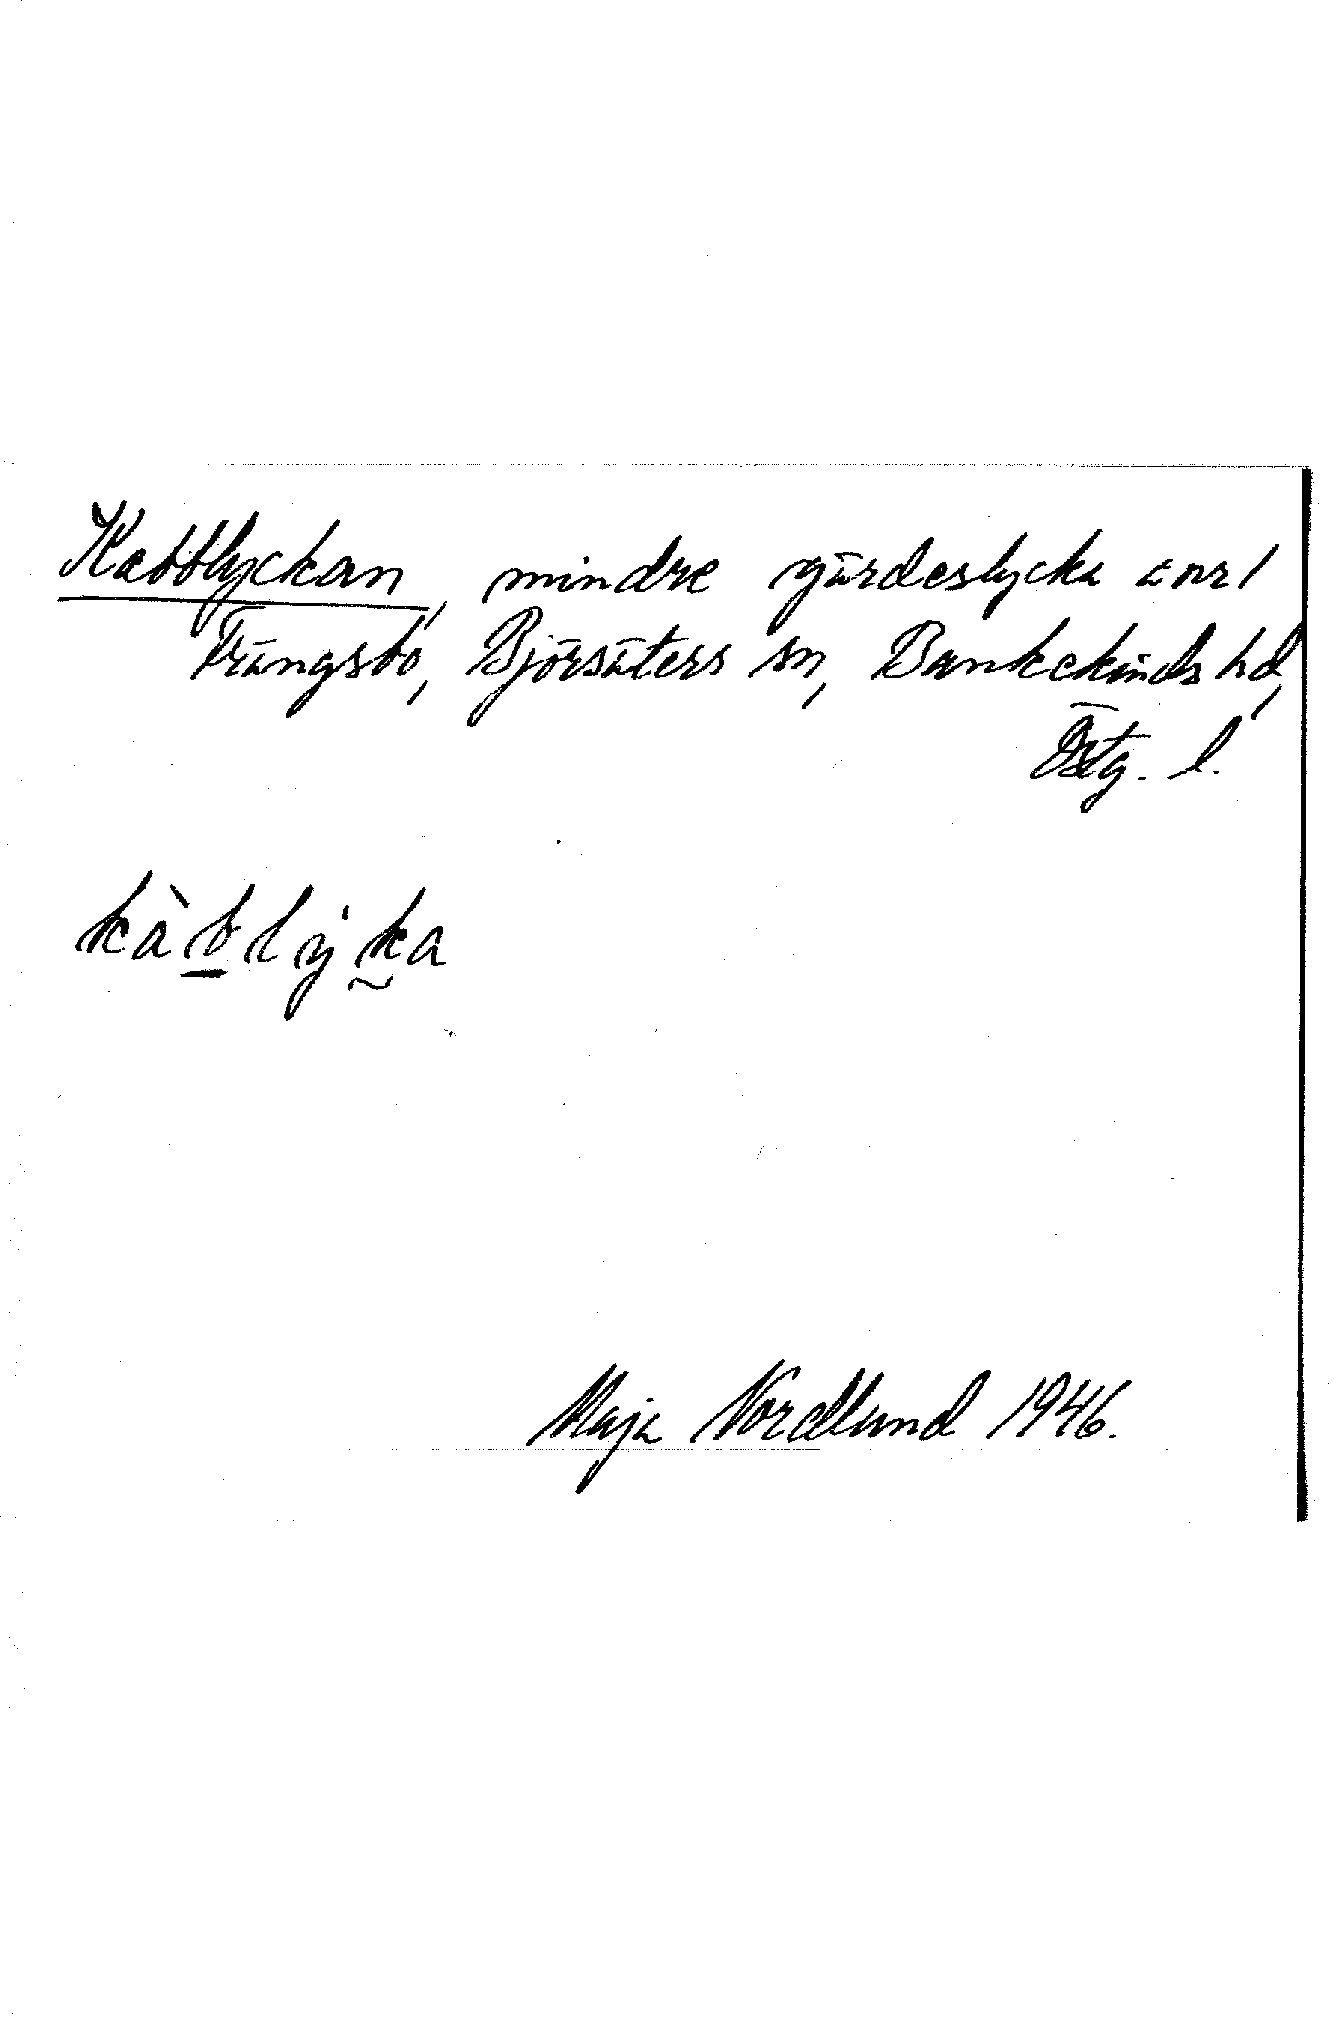 Kabblyckan, mindre gärdeslycka å nr 1
Trängsbo, Björsäters sn, Bankekinds hd,
Östg. l.
kàblẏka
Maja Nordlund 1946.